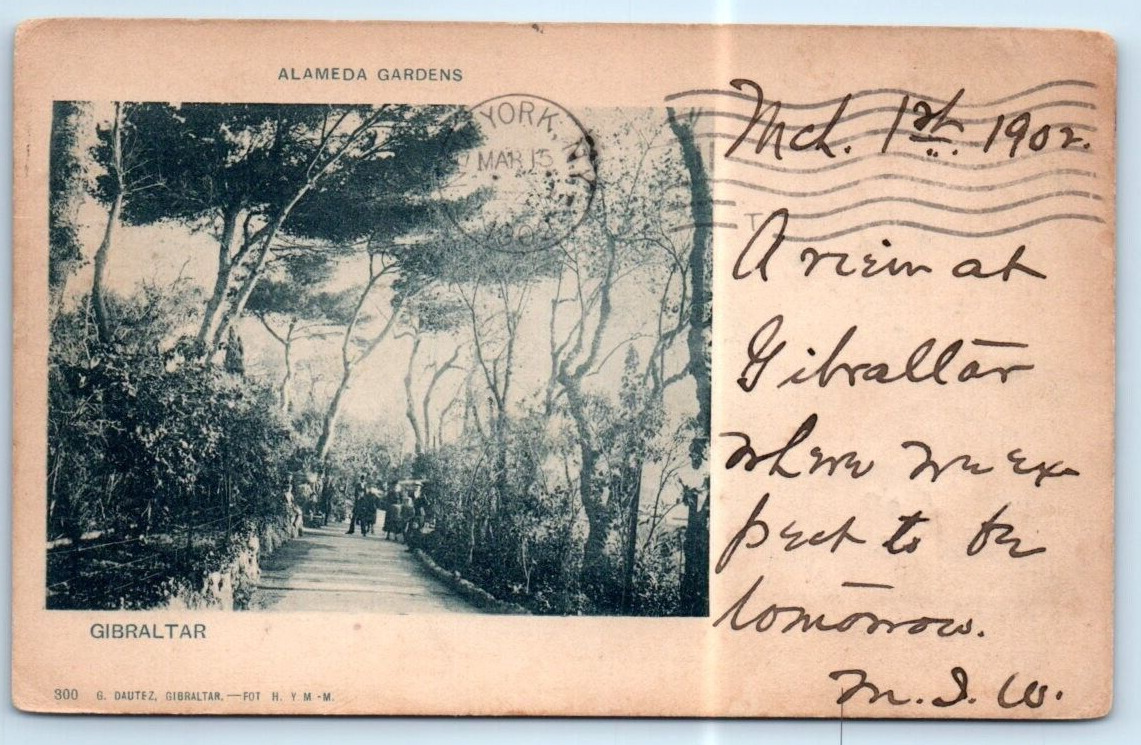 ALAMEDA GARDENS
YORK, N.Y.
MAR 15
Mch. 1st. 1902.
T
A view at
Gibraltar
where we ex
pect to be
tomorrow.
M. I. W.
GIBRALTAR
300 G. DAUTEZ, GIBRALTAR.—FOT H. Y M-M.